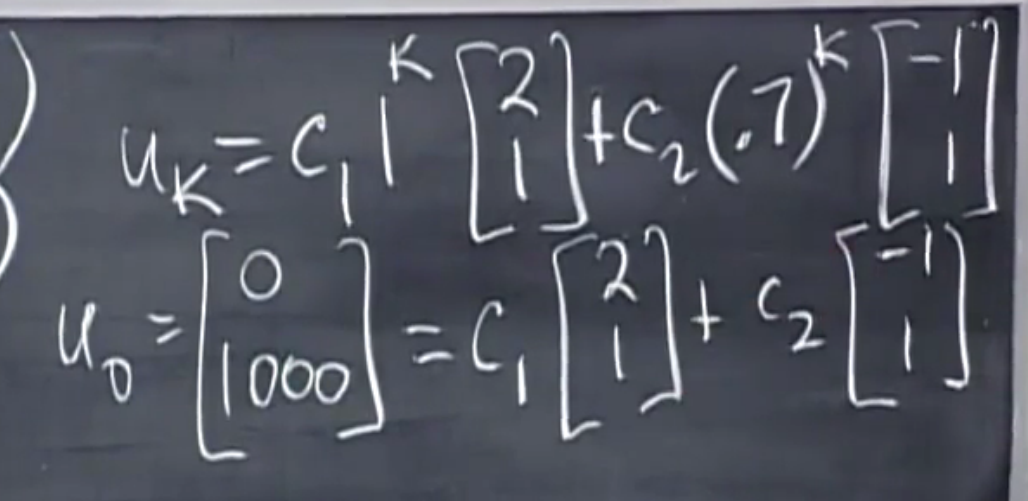 u_K = c_1 1^K [2 1] + c_2 (.7)^K [-1 1]
u_0 = [0 1000] = c_1 [2 1] + c_2 [-1 1]